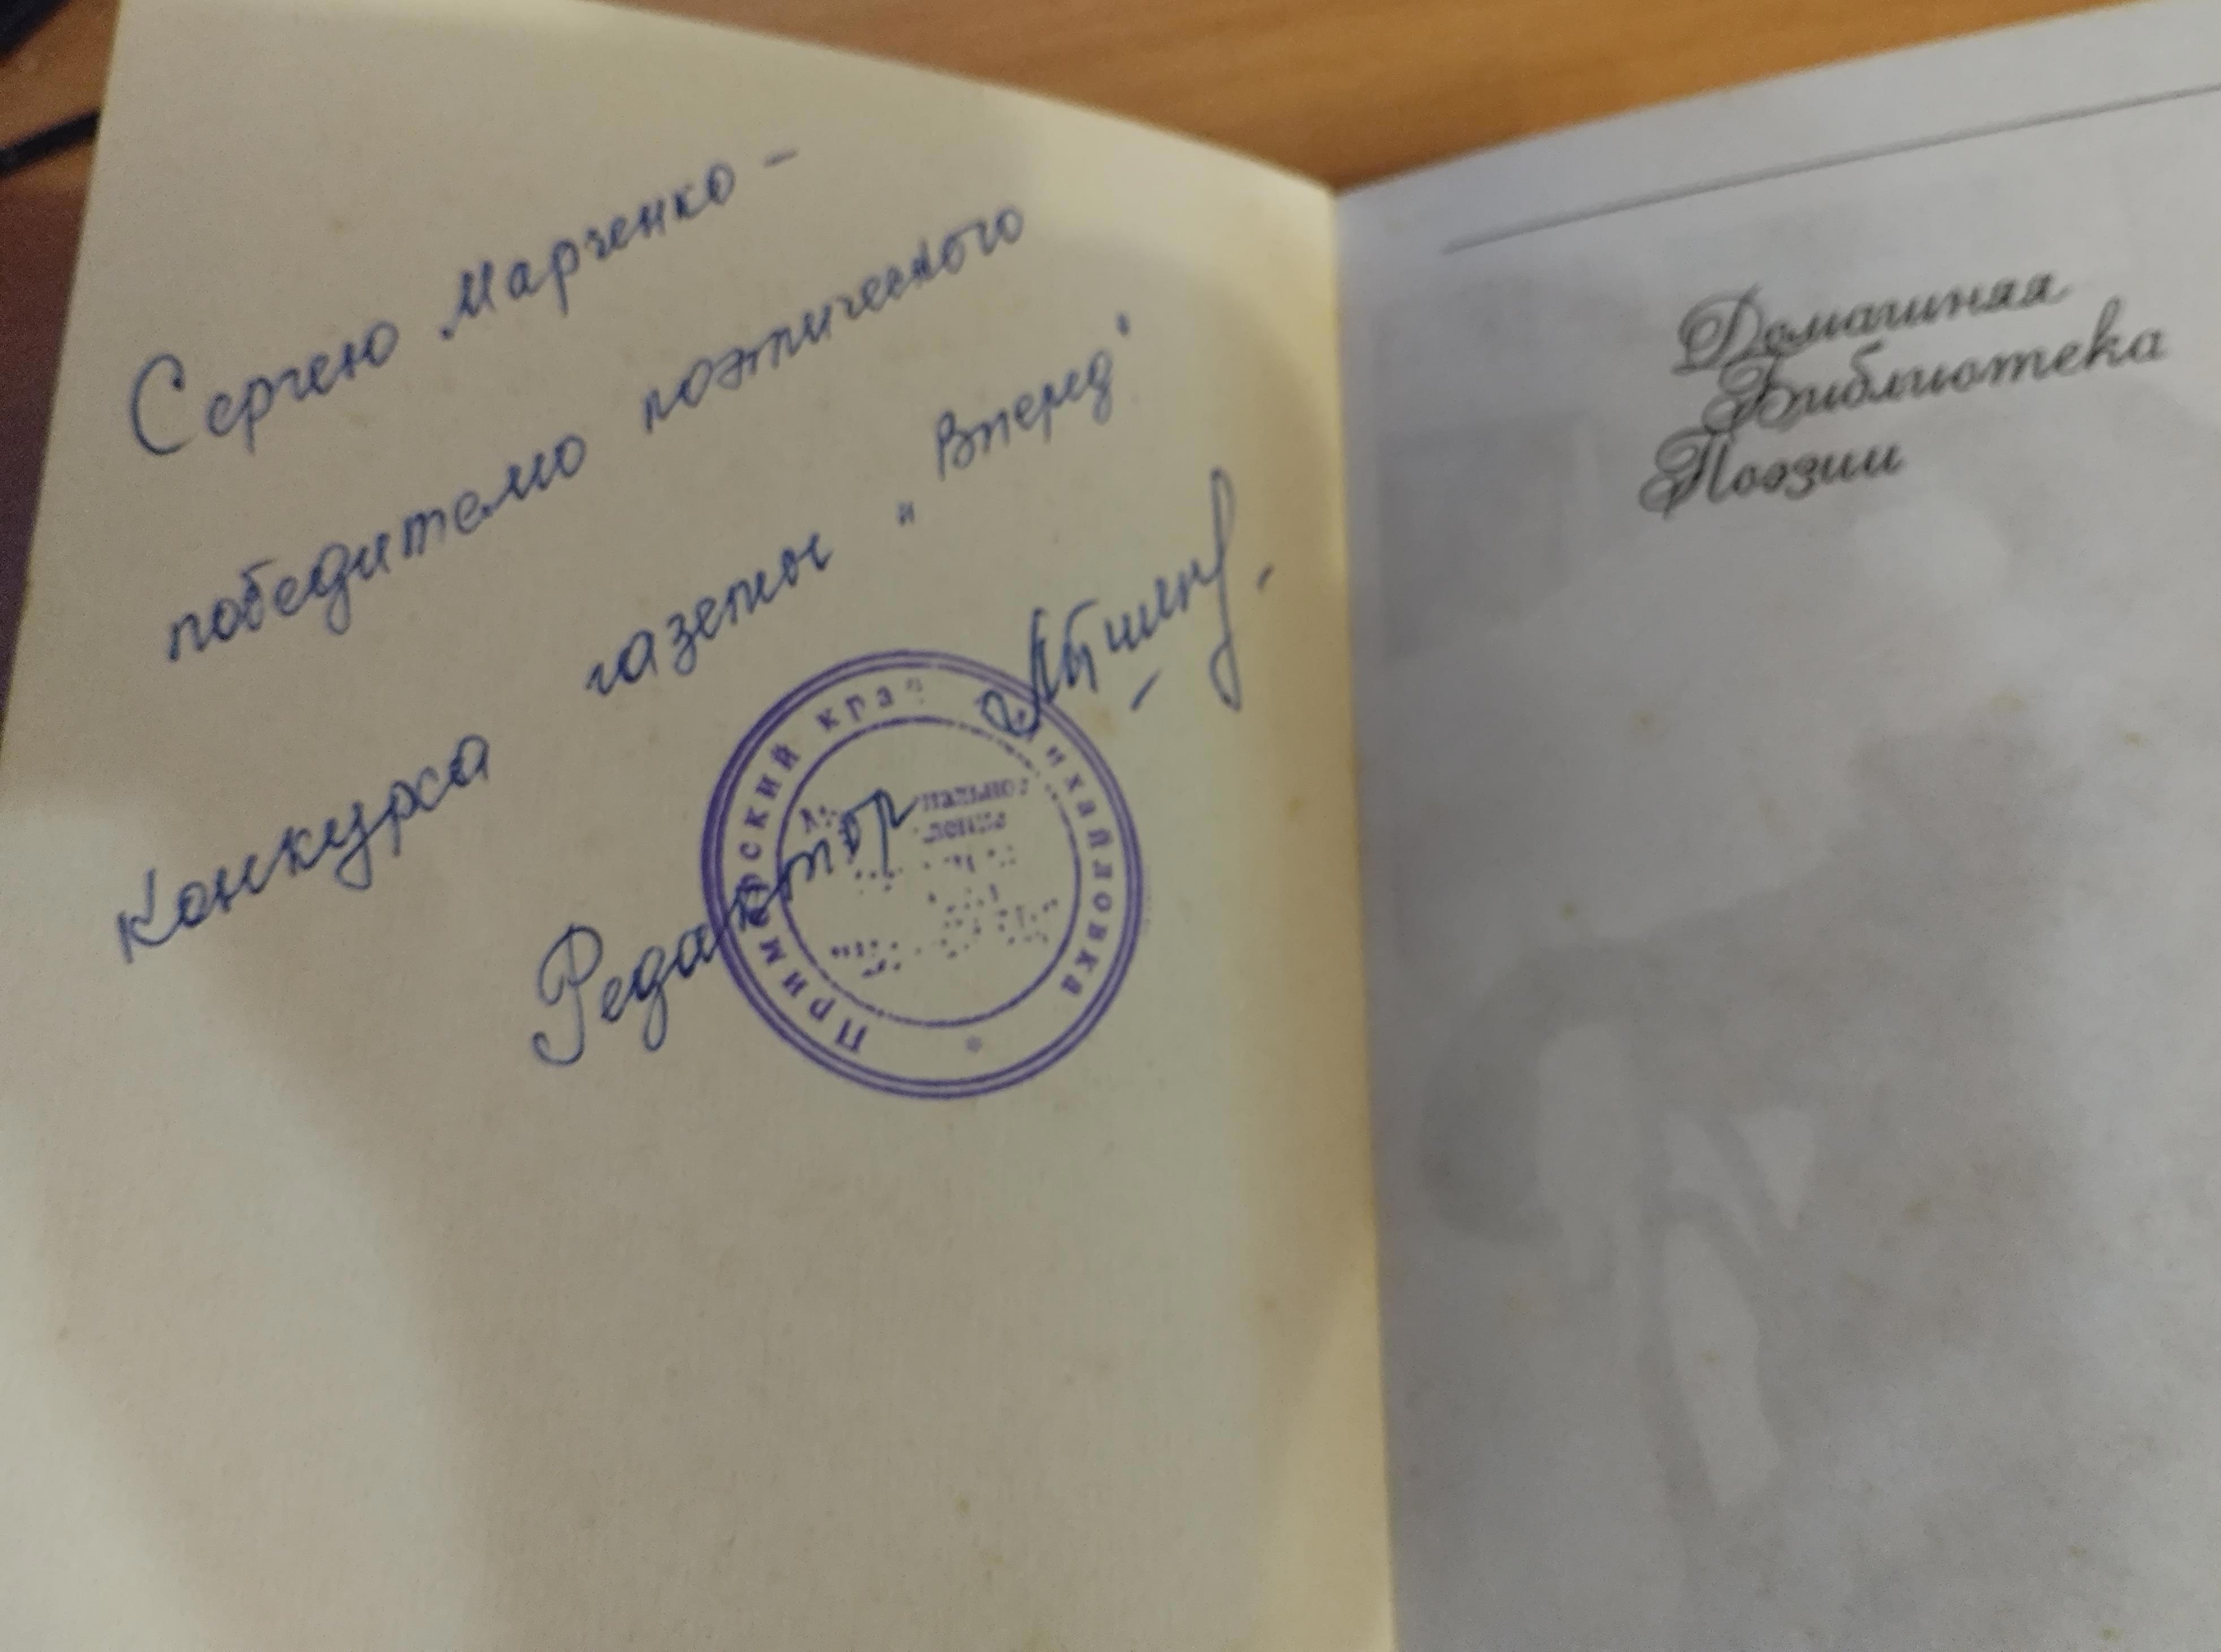 Сергею Марченко –
победителю поэтического
конкурса газеты "Вперед"
Редактор
Приморский край Михайловка
Домашняя
Библиотека
Поэзии